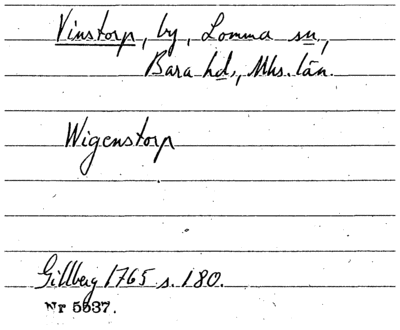 Vinstorp, by, Lomma sn,
Bara hd., Mhs. län.
Wigenstorp
Gillberg 1765 s. 180.
Nr 5537.